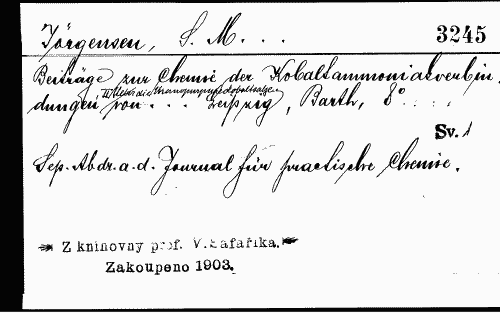 Jörgensen, S. M. . . .
3245
Beiträge zur Chemie der Kobaltammoniakverbin-
dungen von . . . Leipzig, Barth, 8° . . . .
Sv. 1
Sep. Abdr. a. d. Journal für practische Chemie.
Z knihovny prof. V. Šafaříka.
Zakoupeno 1903.